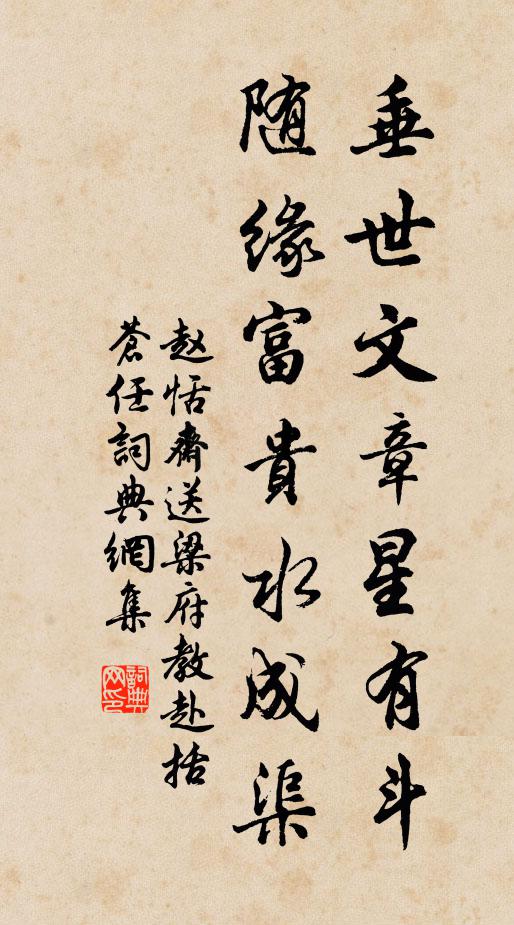 垂世文章星有斗
随缘富貴水成渠
赵恬齋送梁府教赴括
蒼任詞典網集
詞典
网印